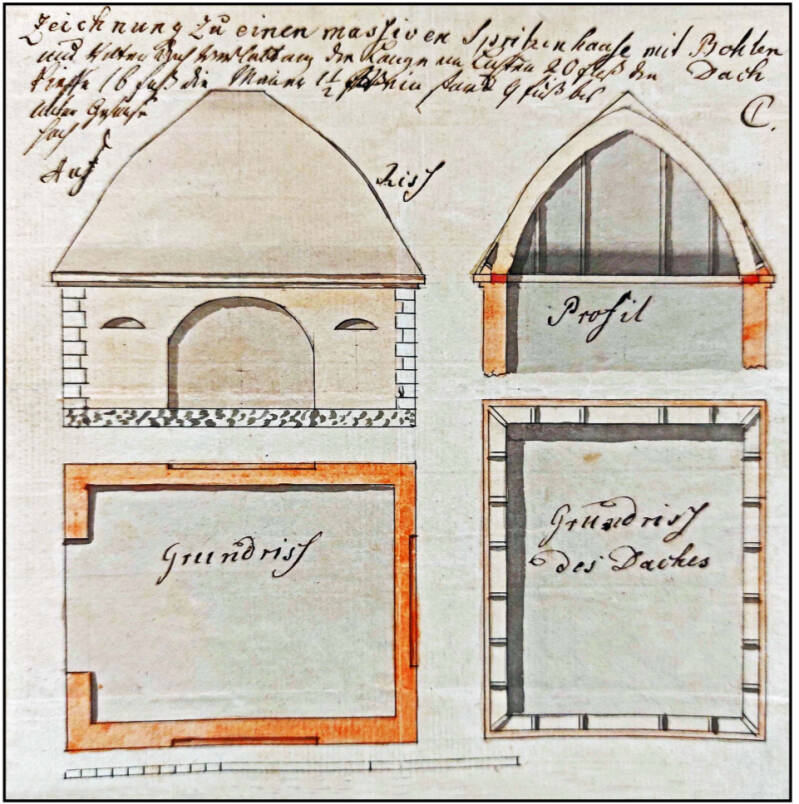 Zeichnung zu einen massiven Spritzenhause mit Bohlen
und Dach die Länge im 20 fuß die Dach
Tieffe 16 fuß die Mauer 1 1/2 9 fuß bis
unter
hoch
C.
Auf Riss
Profil
Grundriss
Grundriss
des Daches